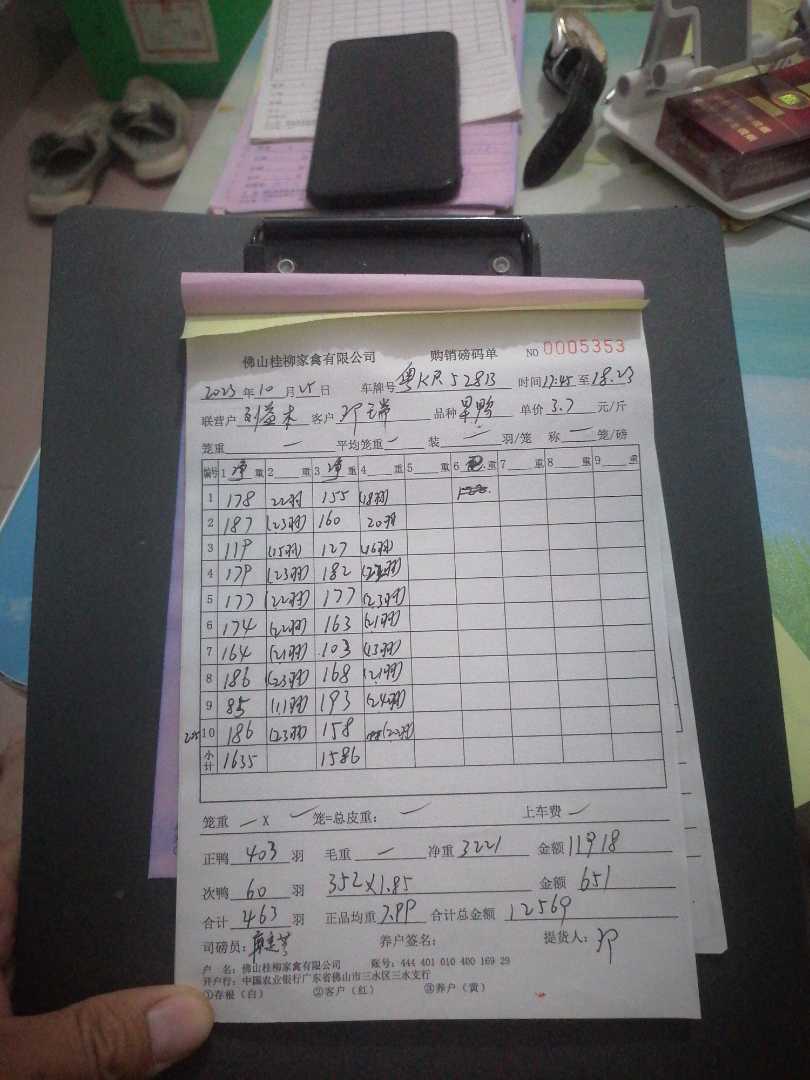 佛山桂柳家禽有限公司 购销磅码单 NO 0005353
2023年10月25日 车牌号 粤KR5281B 时间17:45至18.23
联营户 客户 邓瑞 品种 单价 3.7 元/斤
笼重 一 平均笼重 一 装 一 羽/笼 称 一 笼/磅
编号 1 净 重 2 重 3 净 重 4 重 5 重 6 重 7 重 8 重 9 重
1 178 22羽 155 (18羽)
2 187 (23羽) 160 20羽
3 119 (15羽) 127 (16羽)
4 179 (23羽) 182
5 177 (22羽) 177 (23羽)
6 174 (22羽) 163 (21羽)
7 164 (21羽) 103 (13羽)
8 186 (23羽) 168 (21羽)
9 85 (11羽) 193 (24羽)
10 186 (23羽) 158 (20羽)
小计 1635 1586
笼重 一 X 笼=总皮重: 一 上车费 一
正鸭 403 羽 毛重 一 净重 3221 金额 11918
次鸭 60 羽 352X1.85 金额 651
合计 463 羽 正品均重 7.99 合计总金额 12569
司磅员: 养户签名: 提货人: 邓
户 名: 佛山桂柳家禽有限公司 账号: 444 401 010 400 169 29
开户行: 中国农业银行广东省佛山市三水区三水支行
①存根(白) ②客户(红) ③养户(黄)